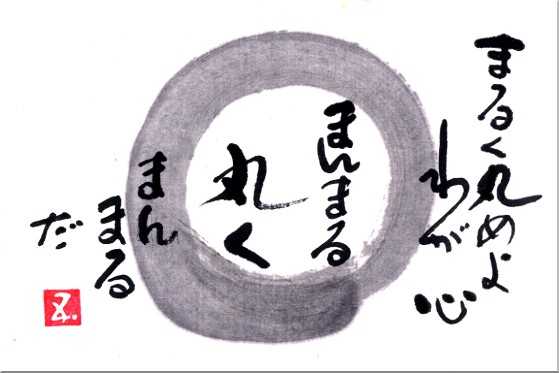 まるく丸めよ
わが心
まんまる
丸く
まん
まる
だ